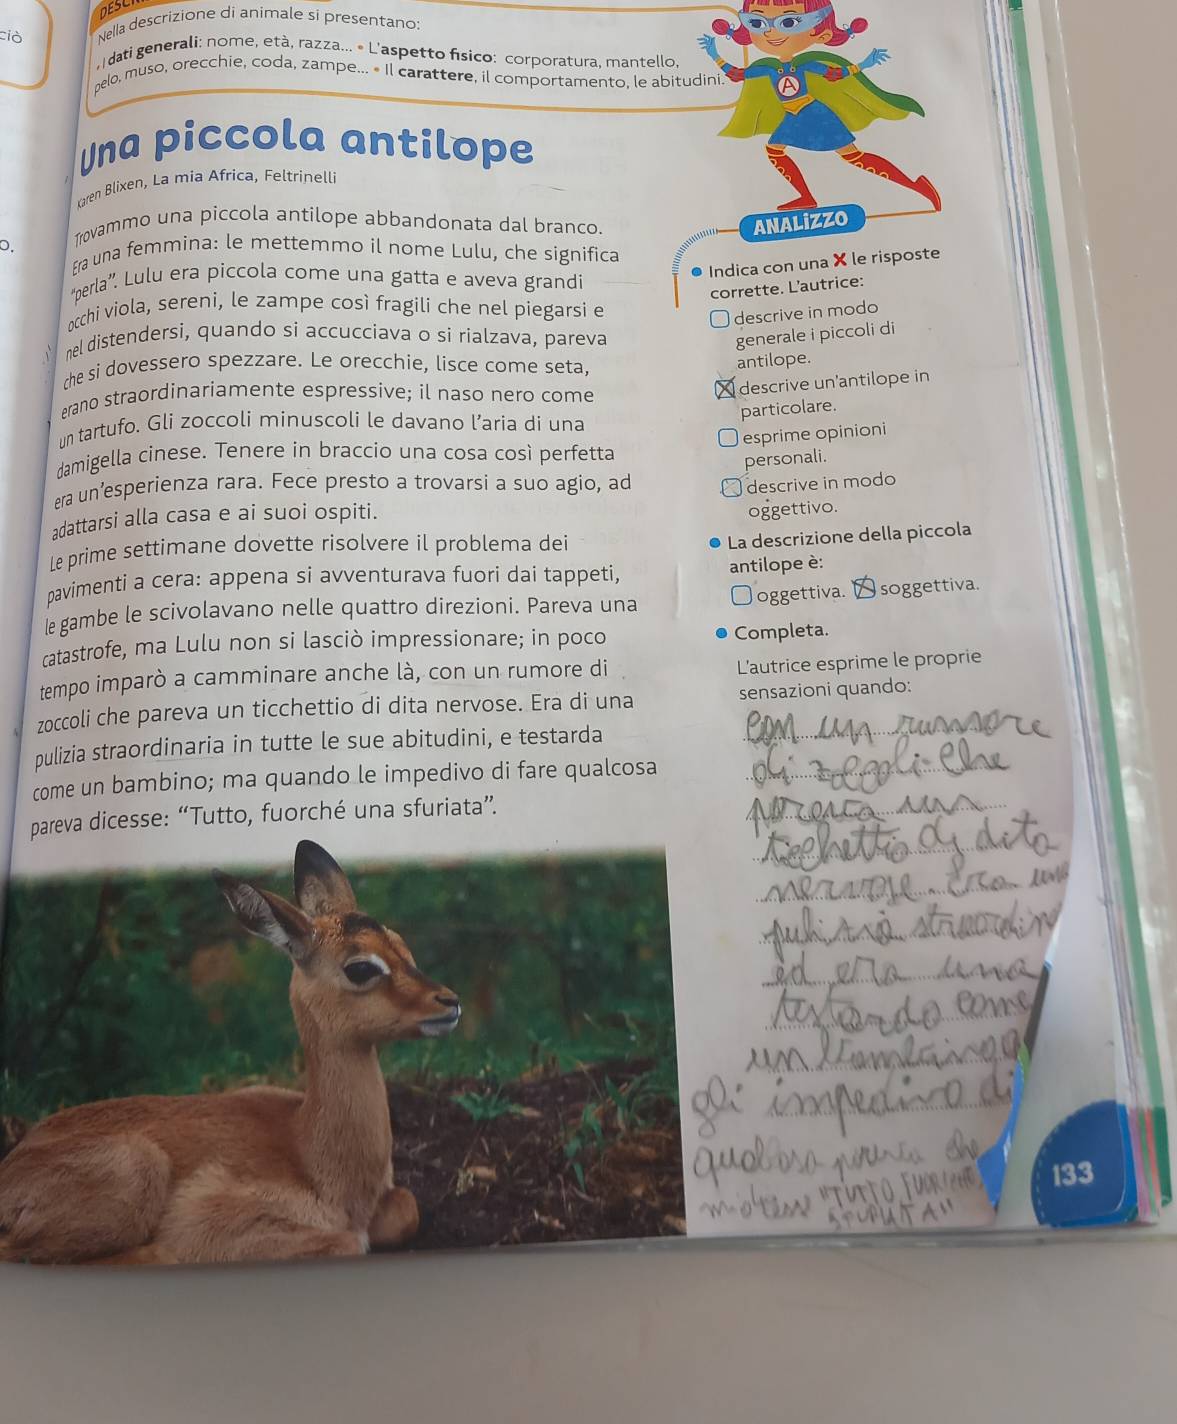 ciò
Nella descrizione di animale si presentano:
• I dati generali: nome, età, razza... • L'aspetto fisico: corporatura, mantello,
pelo, muso, orecchie, coda, zampe... • Il carattere, il comportamento, le abitudini.
A
Una piccola antilope
Karen Blixen, La mia Africa, Feltrinelli
Trovammo una piccola antilope abbandonata dal branco.
Era una femmina: le mettemmo il nome Lulu, che significa
"perla". Lulu era piccola come una gatta e aveva grandi
occhi viola, sereni, le zampe così fragili che nel piegarsi e
nel distendersi, quando si accucciava o si rialzava, pareva
che si dovessero spezzare. Le orecchie, lisce come seta,
erano straordinariamente espressive; il naso nero come
un tartufo. Gli zoccoli minuscoli le davano l'aria di una
damigella cinese. Tenere in braccio una cosa così perfetta
era un'esperienza rara. Fece presto a trovarsi a suo agio, ad
adattarsi alla casa e ai suoi ospiti.
Le prime settimane dovette risolvere il problema dei
pavimenti a cera: appena si avventurava fuori dai tappeti,
le gambe le scivolavano nelle quattro direzioni. Pareva una
catastrofe, ma Lulu non si lasciò impressionare; in poco
tempo imparò a camminare anche là, con un rumore di
zoccoli che pareva un ticchettio di dita nervose. Era di una
pulizia straordinaria in tutte le sue abitudini, e testarda
come un bambino; ma quando le impedivo di fare qualcosa
pareva dicesse: "Tutto, fuorché una sfuriata".
ANALIZZO
• Indica con una X le risposte
corrette. L'autrice:
descrive in modo
generale i piccoli di
antilope.
descrive un'antilope in
particolare.
esprime opinioni
personali.
descrive in modo
oggettivo.
• La descrizione della piccola
antilope è:
oggettiva. soggettiva.
• Completa.
L'autrice esprime le proprie
sensazioni quando:
con un rumore
di zoccoli che
pareva un
ticchettio di dita
nervose. Era una
ed era una
come
gli impedivo di
che
"TUTTO
133